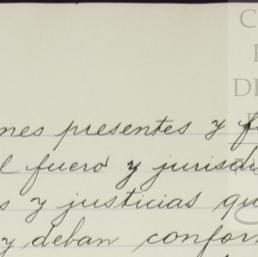 nes presentes y f
l fuero y jurisd
s y justicias qu
y deban confor